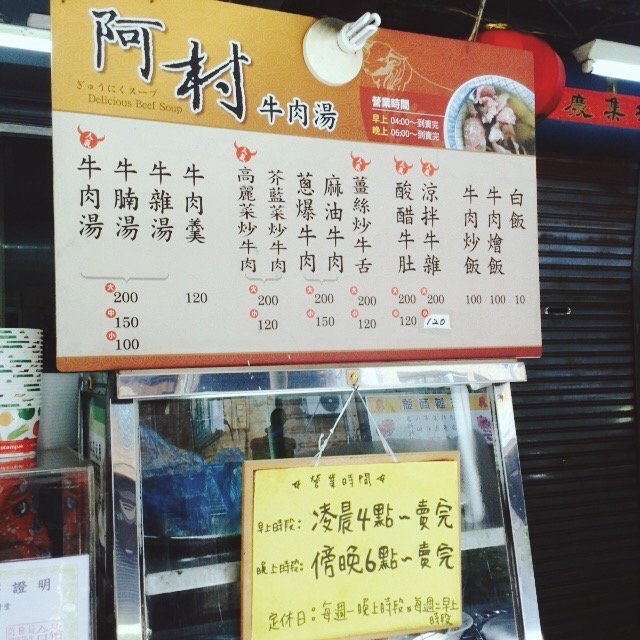 阿村牛肉湯
ぎゅうにくスープ
Delicious Beef Soup
營業時間
早上 04:00~到賣完
晚上 06:00~到賣完
牛肉湯
牛腩湯
牛雜湯
大 200
中 150
小 100
牛肉羹
120
高麗菜炒牛肉
芥藍菜炒牛肉
大 200
小 120
蔥爆牛肉
麻油牛肉
大 200
小 150
薑絲炒牛舌
大 200
小 120
酸醋牛肚
大 200
小 120
涼拌牛雜
大 200
小 120
牛肉炒飯
100
牛肉燴飯
100
白飯
10
慶集
營業時間
早上時段: 凌晨4點~賣完
晚上時段: 傍晚6點~賣完
定休日: 每週一晚上時段&每週二早上時段
證明